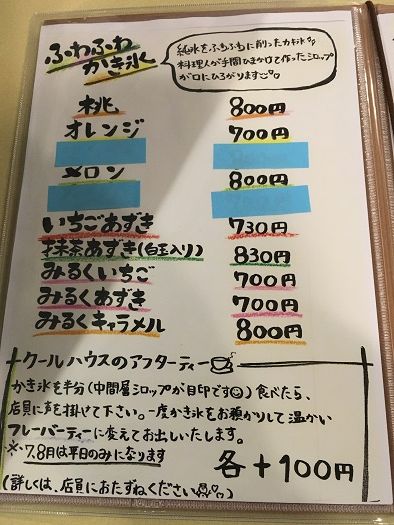 ふわふわ
かき氷
純氷をふわふわに削ったカキ氷
料理人が手間ひまかけて作ったシロップ
が口にひろがります
桃 800円
オレンジ 700円
メロン 800円
いちごあずき 730円
抹茶あずき(白玉入り) 830円
みるくいちご 700円
みるくあずき 700円
みるくキャラメル 800円
クールハウスのアフターティー
かき氷を半分(中間層シロップが目印です)食べたら、
店員に声を掛けて下さい。一度かき氷をお預かりして温かい
フレーバーティーに変えてお出しいたします。
※7.8月は平日のみになります
各+100円
(詳しくは、店員におたずねください)